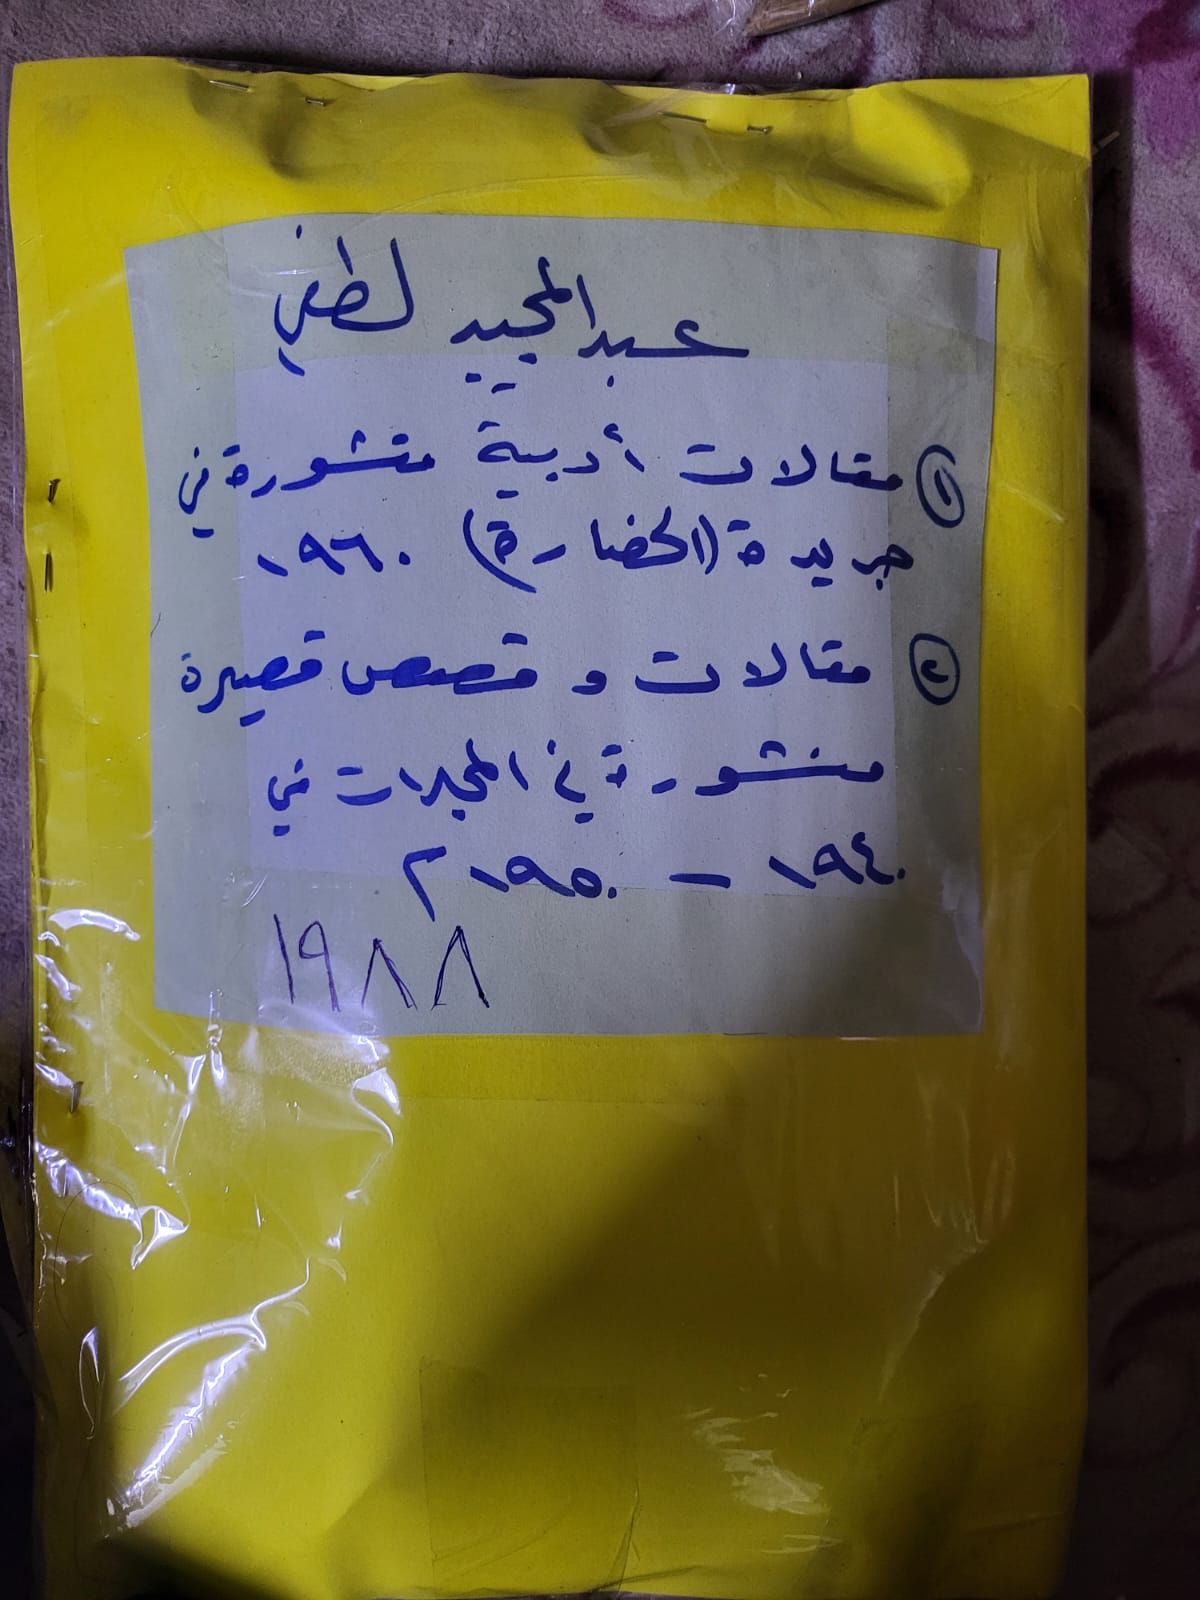 عبدالمجيد لطفي
١ مقالات أدبية منشورة في
جريدة (الحضارة) ١٩٦٠
٢ مقالات و قصص قصيرة
منشورة في المجلات في
١٩٤٠ – ١٩٥٠ م
١٩٨٨